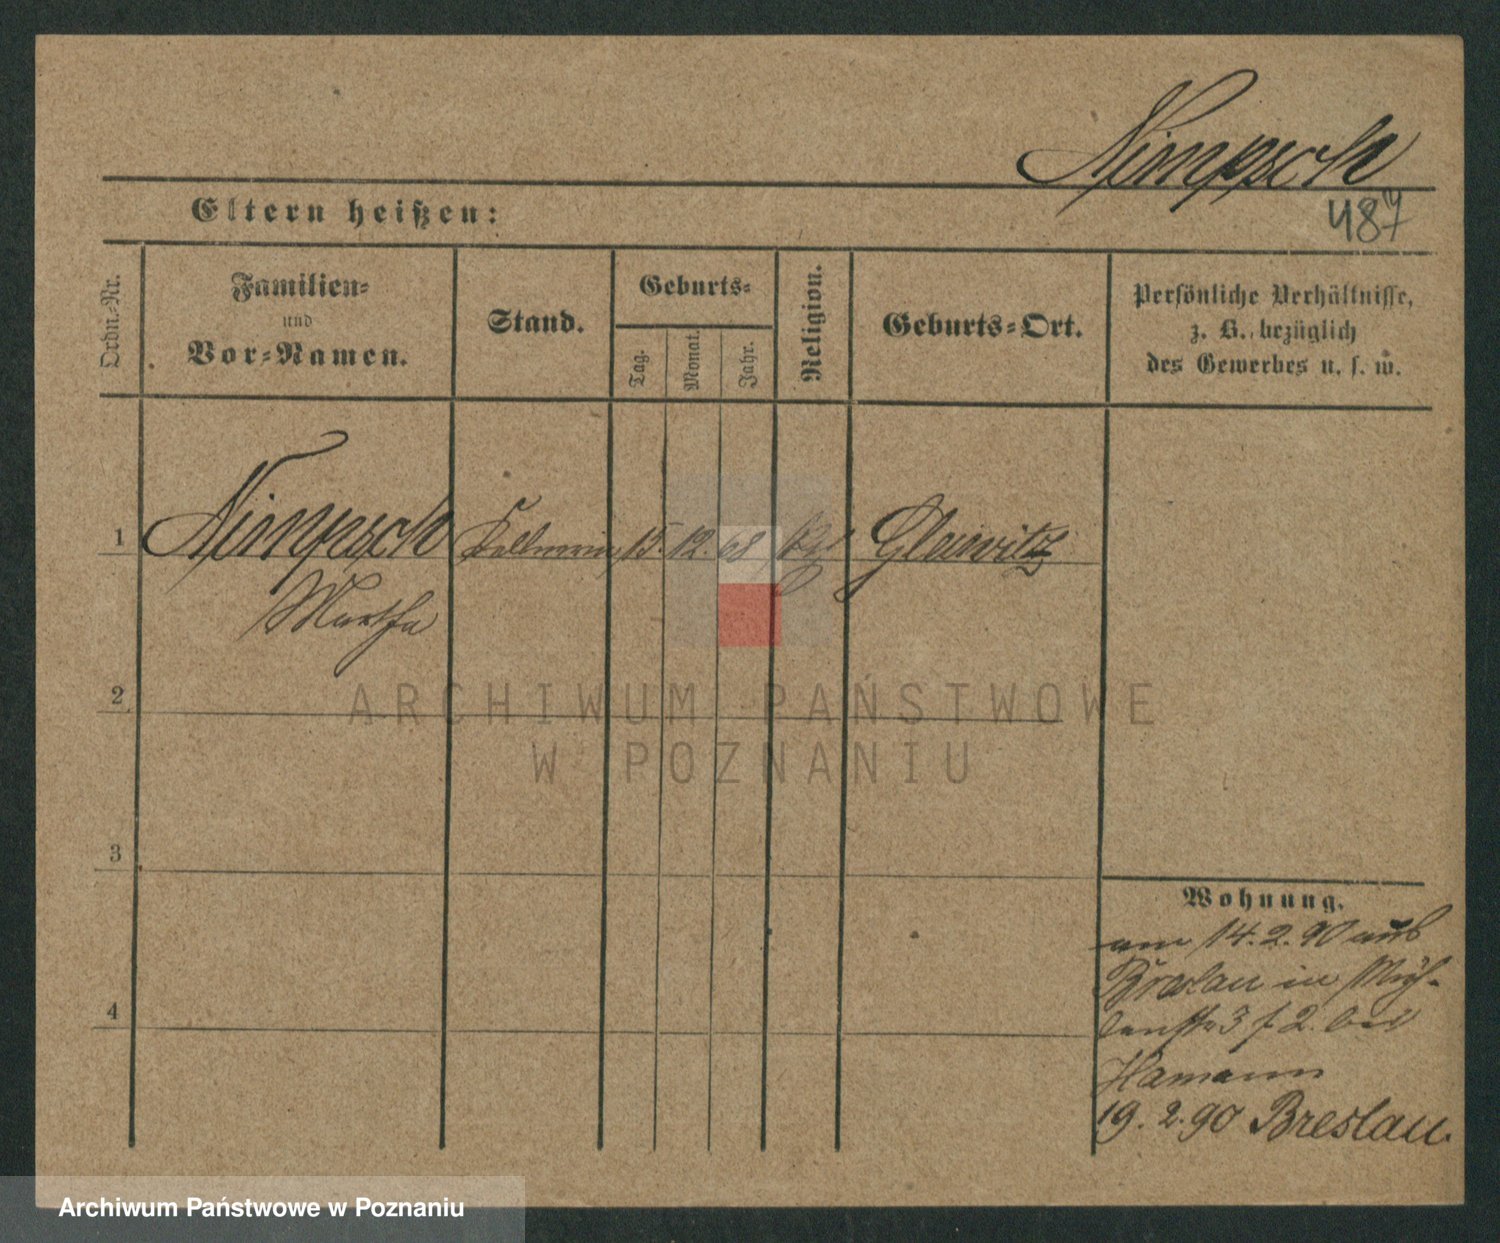 Nimpsch
487
Eltern heißen:
Ordn.-Nr.
Familien-
und
Vor-Namen.
Stand.
Geburts-
Tag.
Monat.
Jahr.
Religion.
Geburts-Ort.
Persönliche Verhältnisse,
z. B. bezüglich
des Gewerbes u. s. w.
1 Nimpsch Kellnerin 15. 12. 68 Gleiwitz
Martha
2
3
4
Wohnung.
am 14.2.90 aus
Breslau in Müh-
lenstr 3 f 2. bei
Hamann
19.2.90 Breslau.
ARCHIWUM PAŃSTWOWE
W POZNANIU
Archiwum Państwowe w Poznaniu